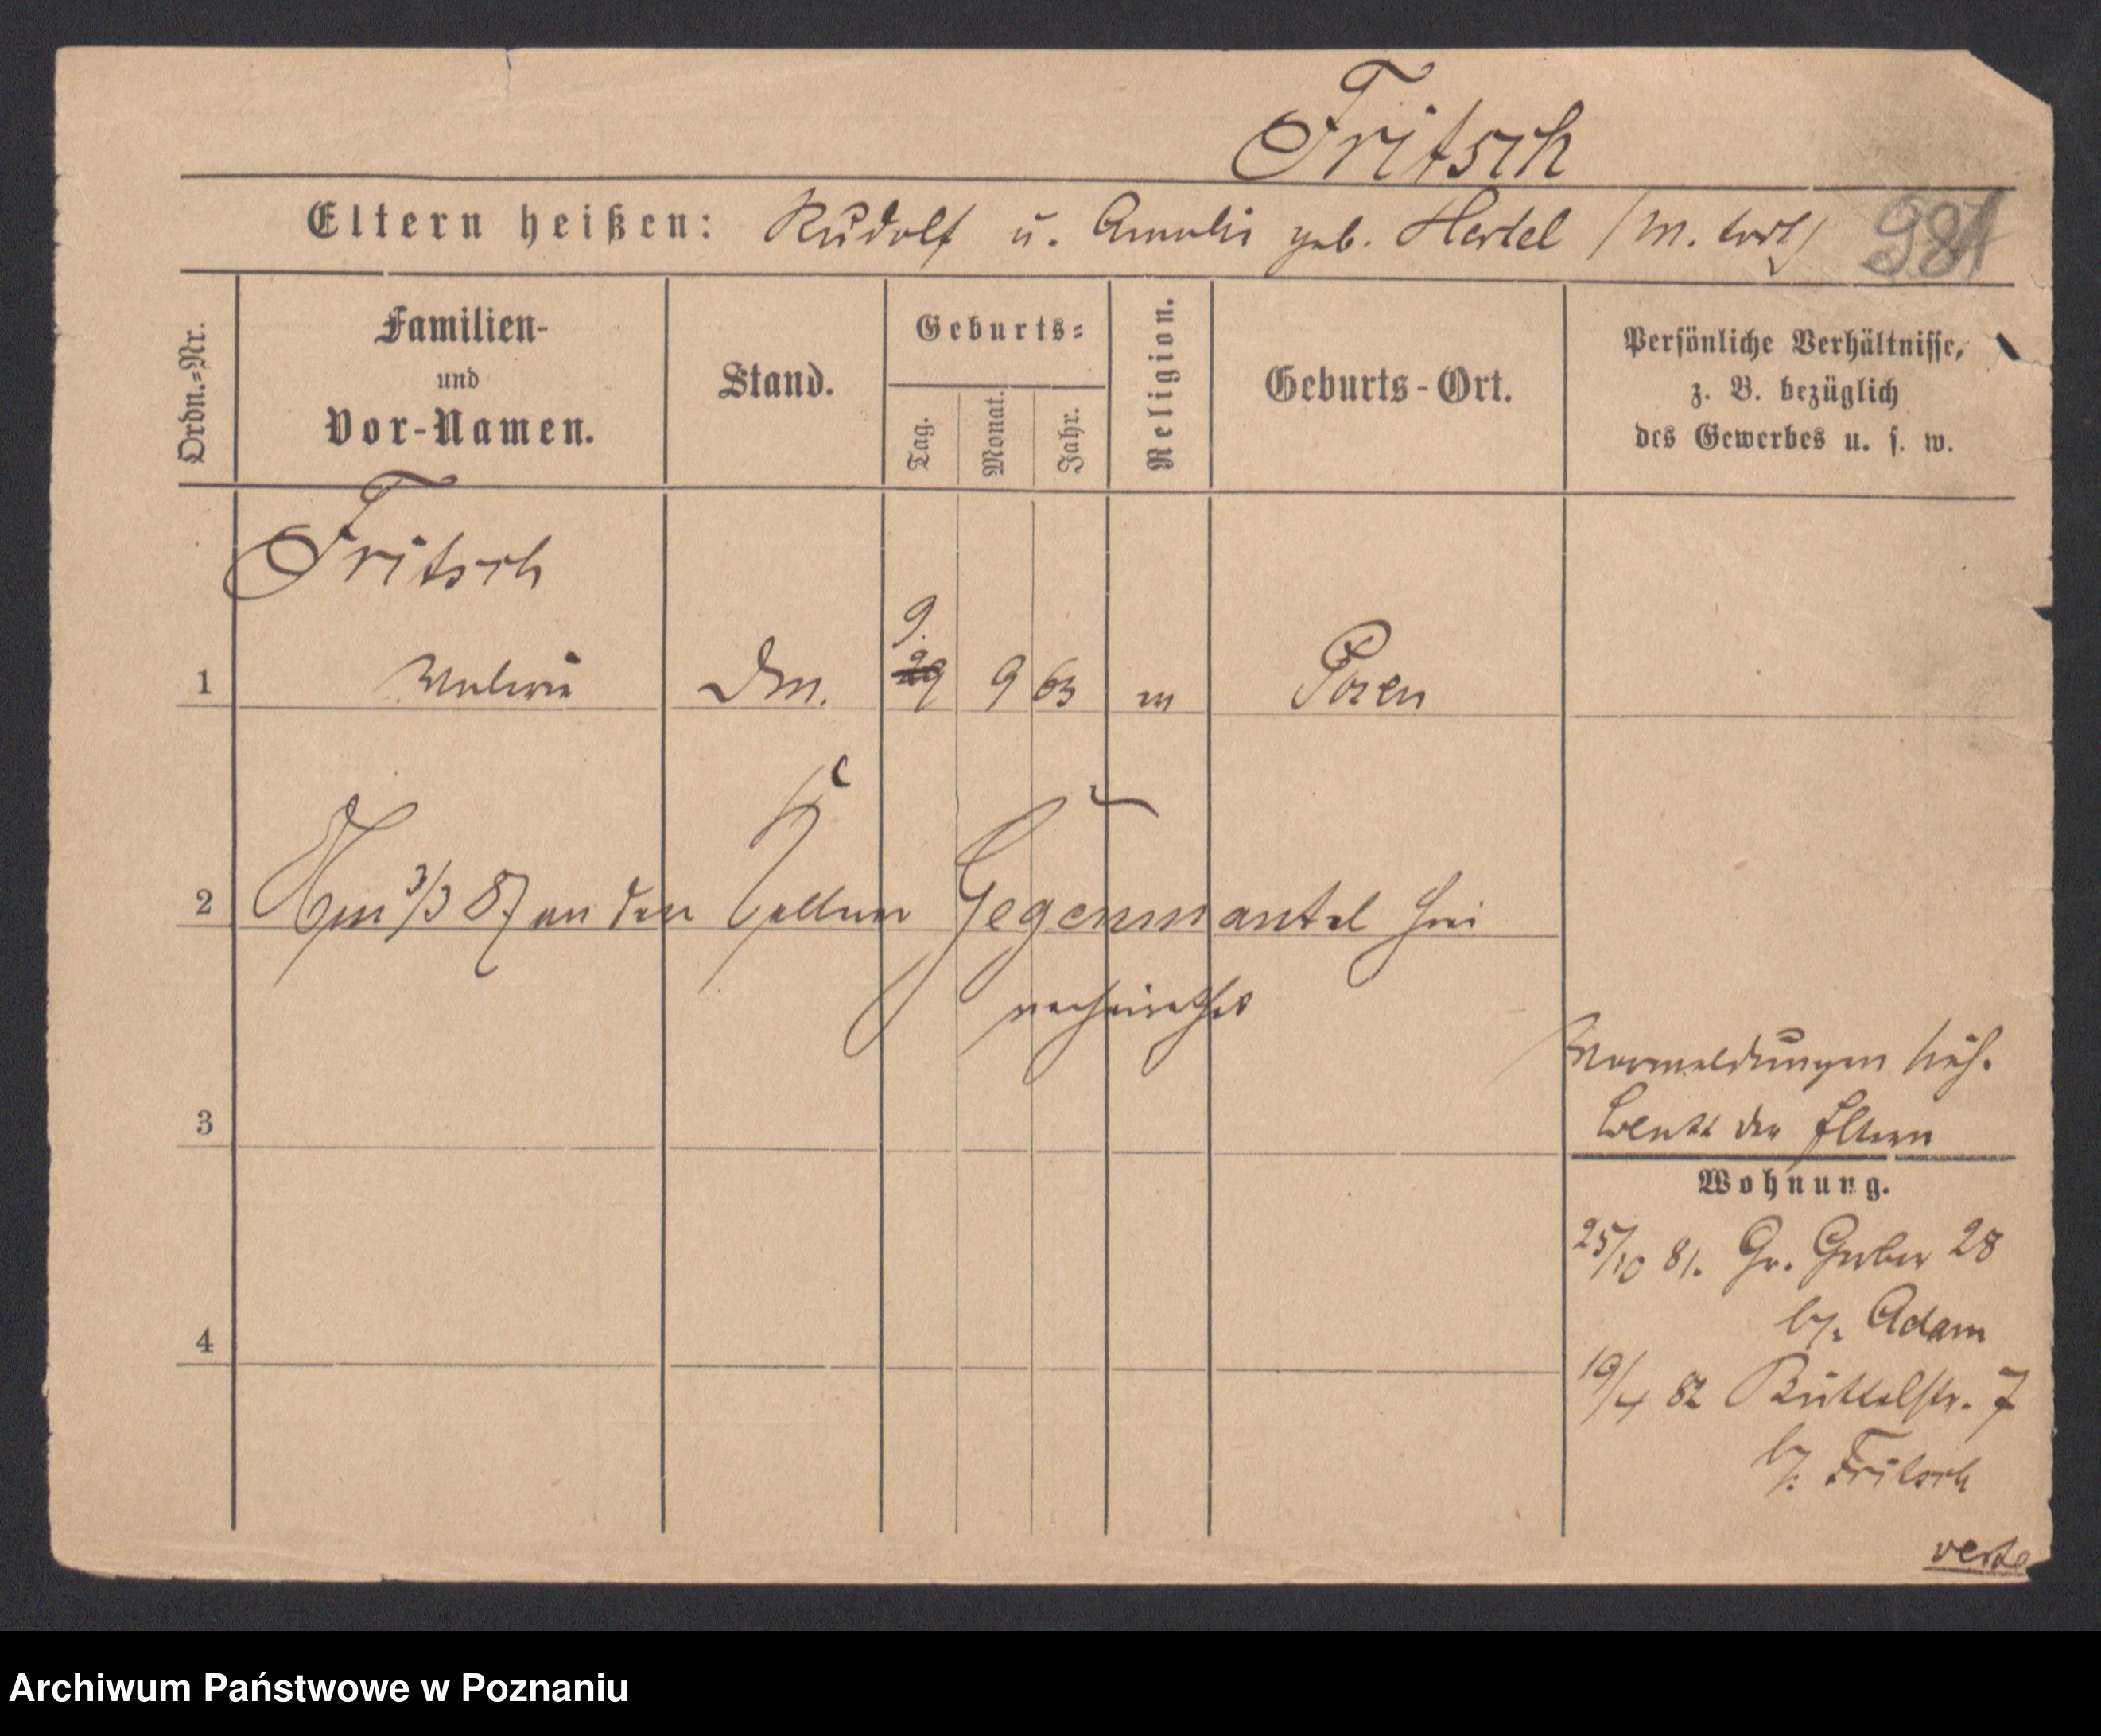 Fritsch
Eltern heißen: Rudolf u. Amalie geb. Hertel /M. todt/
981
Ordn.=Nr.
Familien-
und
Vor-Namen.
Stand.
Geburts=
Tag.
Monat.
Jahr.
Religion.
Geburts-Ort.
Persönliche Verhältnisse,
z. B. bezüglich
des Gewerbes u. s. w.
Fritsch
9.
1 29 9 63 Posen
2 3/3 87 an den Kellner Gegenmantel hier
verheirathet
Vormeldungen
der Eltern
3
Wohnung.
25/10 81. Gr. Gerber 28
by. Adam
4
19/4 82 Büttelstr. 7
by. Fritsch
verte
Archiwum Państwowe w Poznaniu